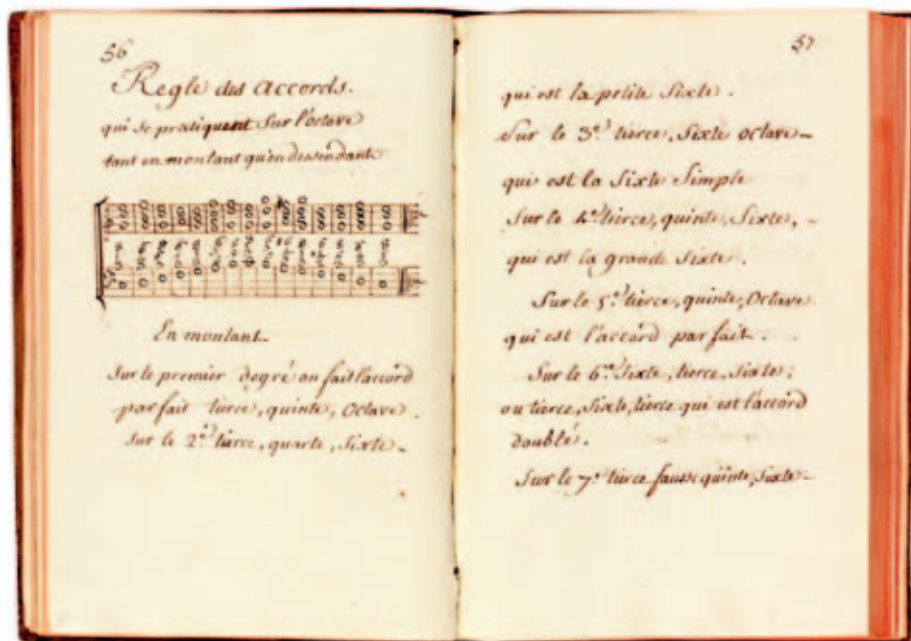 56
Regle des accords.
qui se pratiquent Sur l'octave
tant en montant qu'en dessendant
En montant
Sur le premier degré on fait l'accord
parfait tierce, quinte, Octave.
Sur le 2.e tierce, quarte, Sixte -
57
qui est la petite Sixte.
Sur le 3.e tierce, Sixte octave -
qui est la Sixte Simple
Sur le 4.e tierce, quinte, Sixte, -
qui est la grande Sixte.
Sur le 5.e tierce, quinte, Octave
qui est l'accord parfait.
Sur le 6.e Sixte, tierce, Sixte;
ou tierce, Sixte, tierce qui est l'accord
doublé.
Sur le 7.e tierce fausse quinte, Sixte -